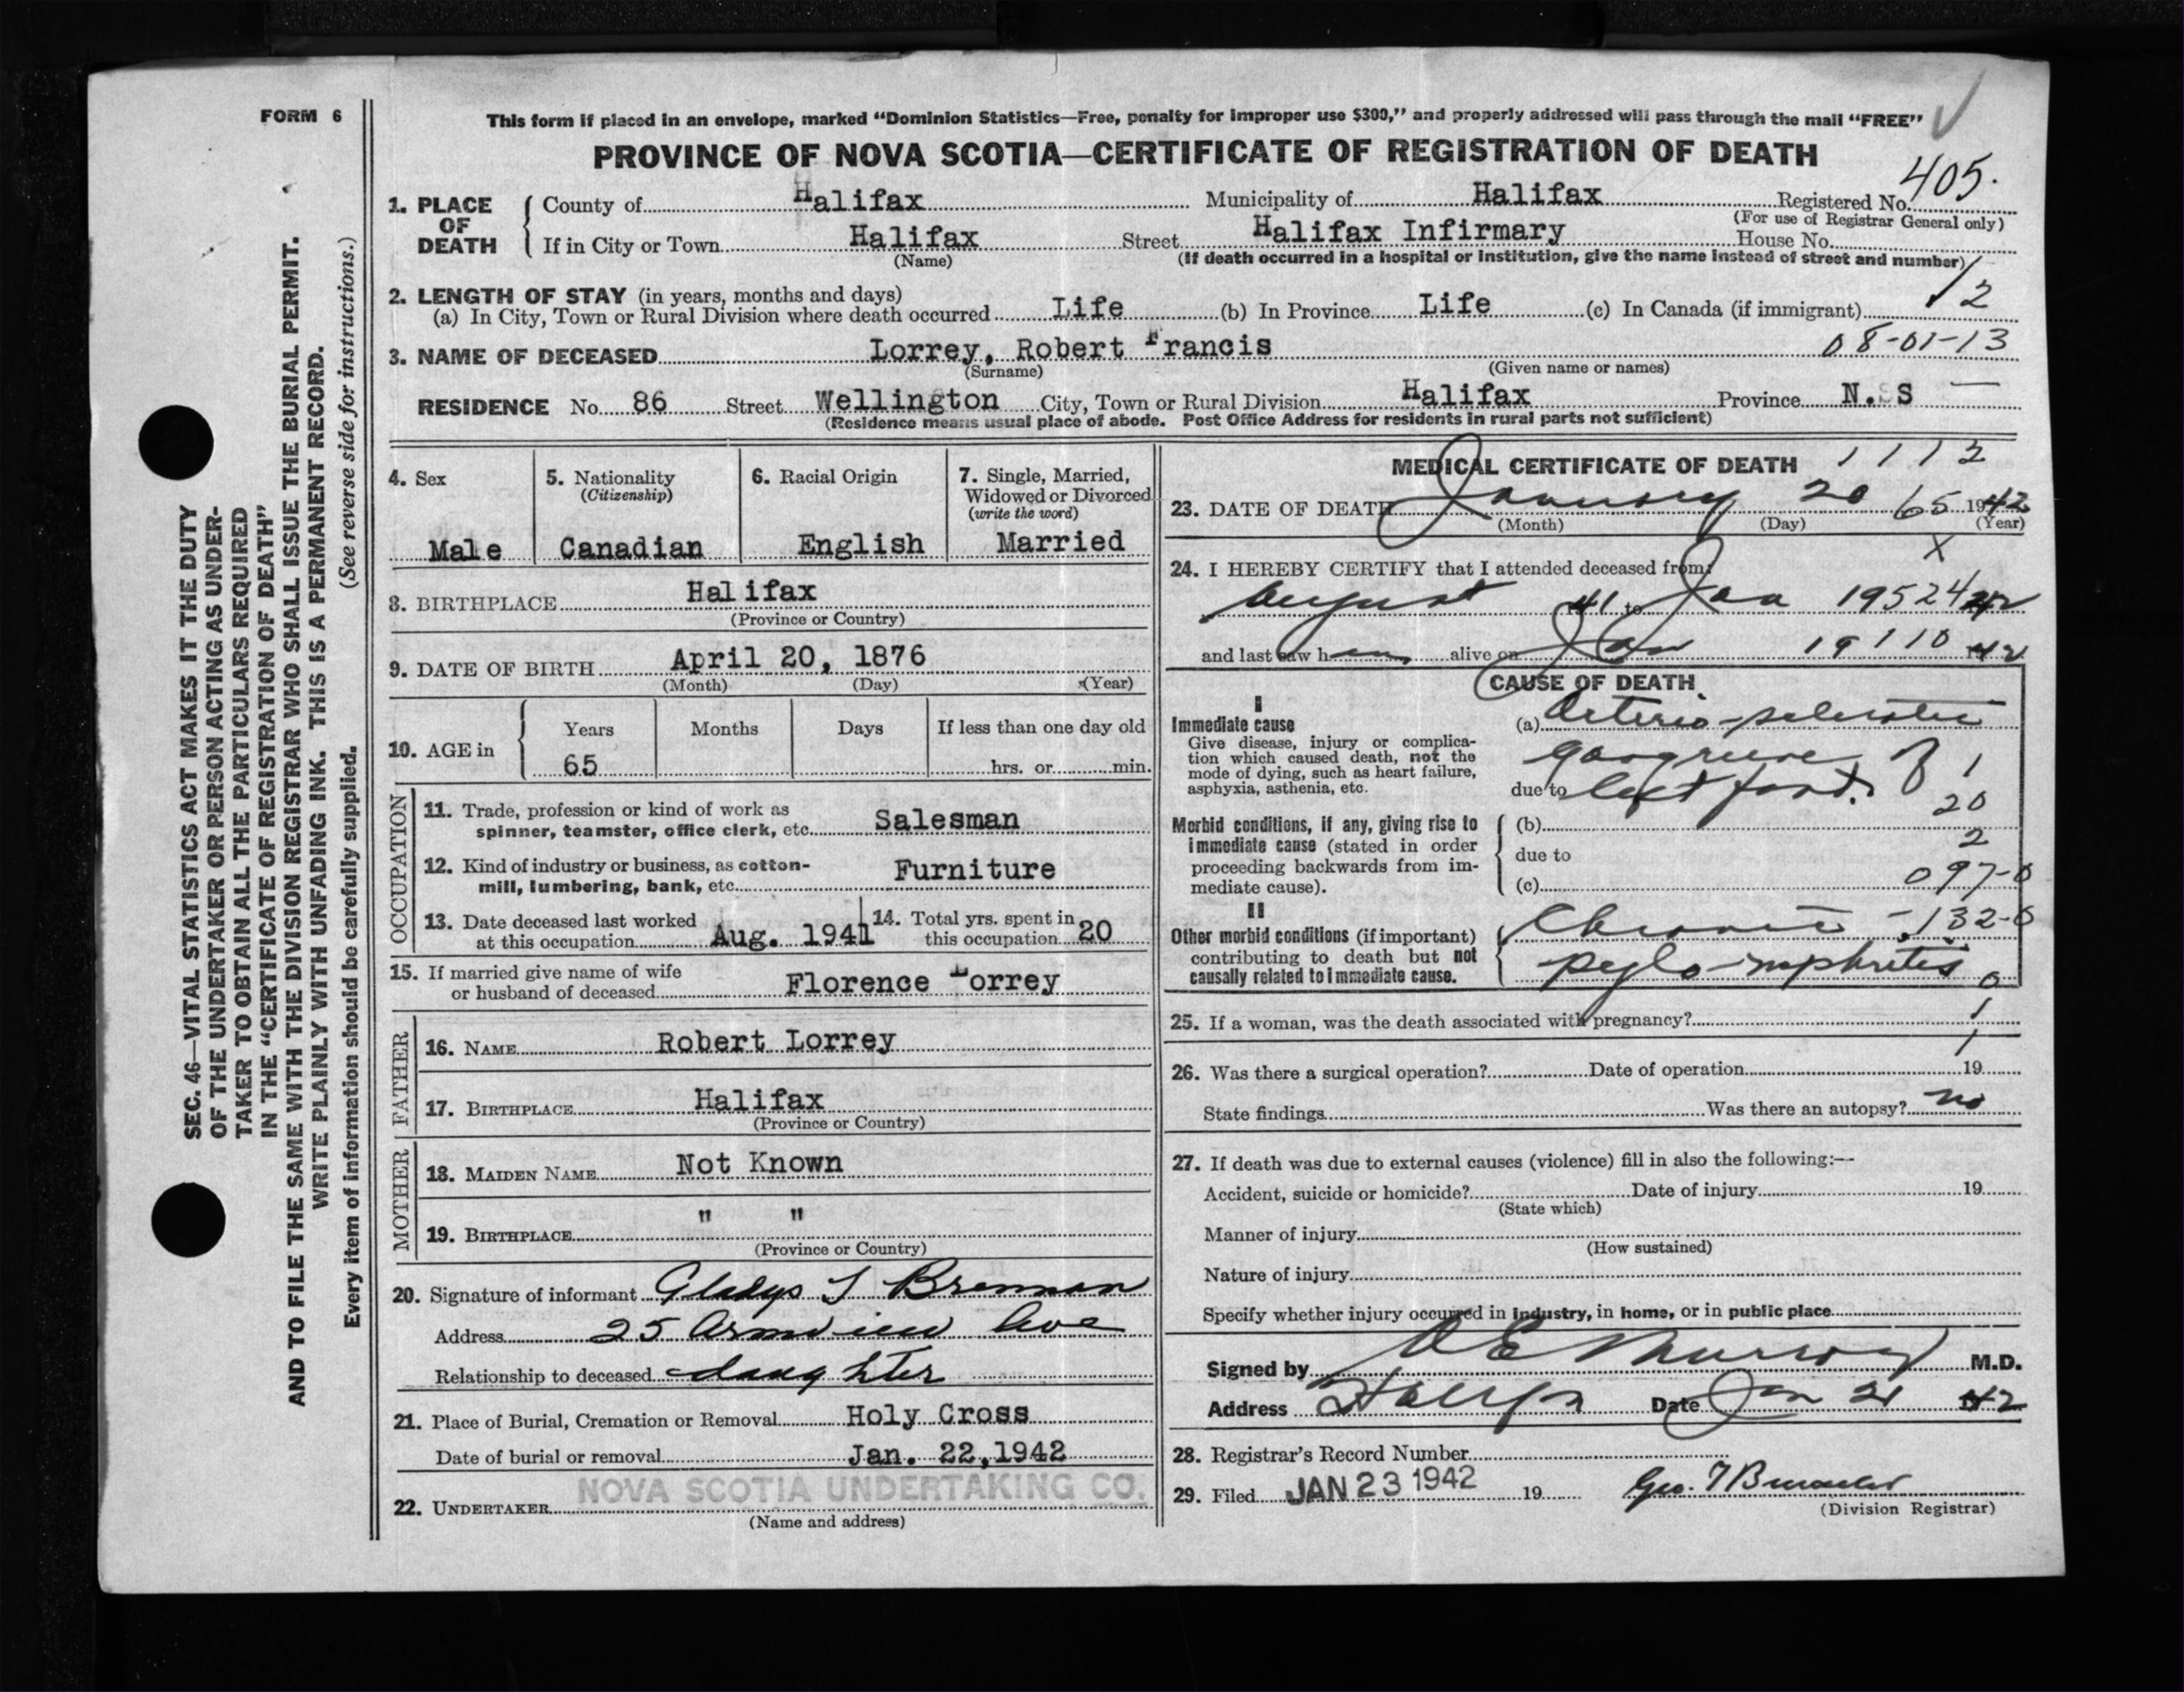 FORM 6
This form if placed in an envelope, marked "Dominion Statistics—Free, penalty for improper use $300," and properly addressed will pass through the mail "FREE"
PROVINCE OF NOVA SCOTIA—CERTIFICATE OF REGISTRATION OF DEATH
405.
1. PLACE OF DEATH
County of Halifax Municipality of Halifax Registered No.
(For use of Registrar General only)
If in City or Town Halifax Street Halifax Infirmary House No.
(Name) (If death occurred in a hospital or institution, give the name instead of street and number)
2. LENGTH OF STAY (in years, months and days)
(a) In City, Town or Rural Division where death occurred Life (b) In Province Life (c) In Canada (if immigrant) 2
3. NAME OF DECEASED Lorrey, Robert Francis 08-01-13
(Surname) (Given name or names)
RESIDENCE No. 86 Street Wellington City, Town or Rural Division Halifax Province N.S
(Residence means usual place of abode. Post Office Address for residents in rural parts not sufficient)
4. Sex
Male
5. Nationality
(Citizenship)
Canadian
6. Racial Origin
English
7. Single, Married,
Widowed or Divorced
(write the word)
Married
8. BIRTHPLACE Halifax
(Province or Country)
9. DATE OF BIRTH April 20, 1876
(Month) (Day) (Year)
10. AGE in
Years Months Days If less than one day old
65 hrs. or min.
OCCUPATION
11. Trade, profession or kind of work as
spinner, teamster, office clerk, etc. Salesman
12. Kind of industry or business, as cotton-
mill, lumbering, bank, etc. Furniture
13. Date deceased last worked
at this occupation Aug. 1941
14. Total yrs. spent in
this occupation 20
15. If married give name of wife
or husband of deceased Florence Lorrey
FATHER
16. NAME Robert Lorrey
17. BIRTHPLACE Halifax
(Province or Country)
MOTHER
18. MAIDEN NAME Not Known
19. BIRTHPLACE " "
(Province or Country)
20. Signature of informant Gladys Brennan
Address 25 Armview Ave
Relationship to deceased daughter
21. Place of Burial, Cremation or Removal Holy Cross
Date of burial or removal Jan. 22, 1942
22. UNDERTAKER NOVA SCOTIA UNDERTAKING CO.
(Name and address)
MEDICAL CERTIFICATE OF DEATH 1112
23. DATE OF DEATH January 20 65 1942
(Month) (Day) (Year)
X
24. I HEREBY CERTIFY that I attended deceased from:
August 41 to Jan 19 524 42
and last saw him alive on Jan 19 110 42
CAUSE OF DEATH
I
Immediate cause
Give disease, injury or complica-
tion which caused death, not the
mode of dying, such as heart failure,
asphyxia, asthenia, etc.
(a) Arterio-sclerotic
gangrene of 1
due to left foot. 20
Morbid conditions, if any, giving rise to
immediate cause (stated in order
proceeding backwards from im-
mediate cause).
(b)
due to 2
(c) 097-0
II
Other morbid conditions (if important)
contributing to death but not
causally related to immediate cause.
Chronic 132-0
pyelo-nephritis 0
25. If a woman, was the death associated with pregnancy? 1
1
26. Was there a surgical operation? Date of operation 19
State findings Was there an autopsy? no
27. If death was due to external causes (violence) fill in also the following:—
Accident, suicide or homicide? Date of injury 19
(State which)
Manner of injury
(How sustained)
Nature of injury
Specify whether injury occurred in industry, in home, or in public place
Signed by Murray M.D.
Address Halifax Date Jan 21 42
28. Registrar's Record Number
29. Filed JAN 23 1942 19 Geo.
(Division Registrar)
SEC. 46—VITAL STATISTICS ACT MAKES IT THE DUTY
OF THE UNDERTAKER OR PERSON ACTING AS UNDER-
TAKER TO OBTAIN ALL THE PARTICULARS REQUIRED
IN THE "CERTIFICATE OF REGISTRATION OF DEATH"
AND TO FILE THE SAME WITH THE DIVISION REGISTRAR WHO SHALL ISSUE THE BURIAL PERMIT.
WRITE PLAINLY WITH UNFADING INK. THIS IS A PERMANENT RECORD.
Every item of information should be carefully supplied. (See reverse side for instructions.)